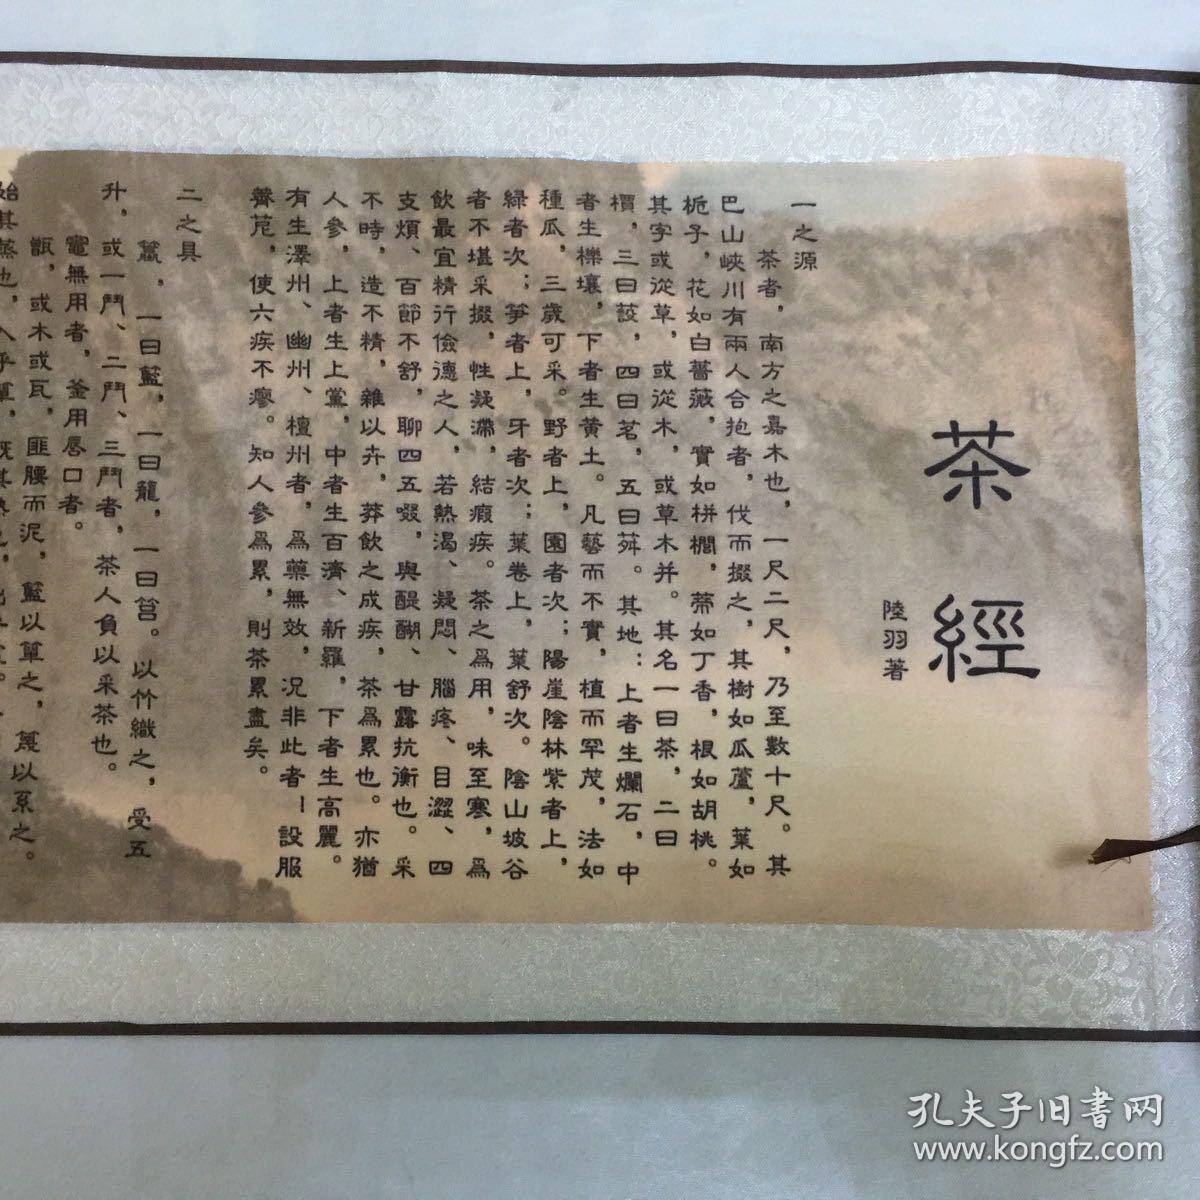 茶經
陸羽著
一之源
茶者，南方之嘉木也，一尺二尺，乃至數十尺。其
巴山峽川有兩人合抱者，伐而掇之，其樹如瓜蘆，葉如
栀子，花如白薔薇，實如栟櫚，蒂如丁香，根如胡桃。
其字或從草，或從木，或草木并。其名一曰茶，二曰
檟，三曰蔎，四曰茗，五曰荈。其地：上者生爛石，中
者生櫟壤，下者生黄土。凡藝而不實，植而罕茂，法如
種瓜，三歲可采。野者上，園者次；陽崖陰林紫者上，
緑者次；笋者上，牙者次；葉卷上，葉舒次。陰山坡谷
者不堪采掇，性凝滯，結瘕疾。茶之爲用，味至寒，爲
飲最宜精行儉德之人，若熱渴、凝悶、腦疼、目澀、四
支煩、百節不舒，聊四五啜，與醍醐、甘露抗衡也。采
不時，造不精，雜以卉，莽飲之成疾，茶爲累也。亦猶
人參，上者生上黨，中者生百濟、新羅，下者生高麗。
有生澤州、幽州、檀州者，爲藥無效，况非此者！設服
薺苨，使六疾不瘳。知人參爲累，則茶累盡矣。
二之具
籯，一曰籃，一曰籠，一曰筥。以竹織之，受五
升，或一鬥、二鬥、三鬥者，茶人負以采茶也。
竈無用者，釜用唇口者。
甑，或木或瓦，匪腰而泥，籃以箄之，篾以系之。
始其蒸也，入乎箄，既其熟也，
孔夫子旧書网
www.kongfz.com